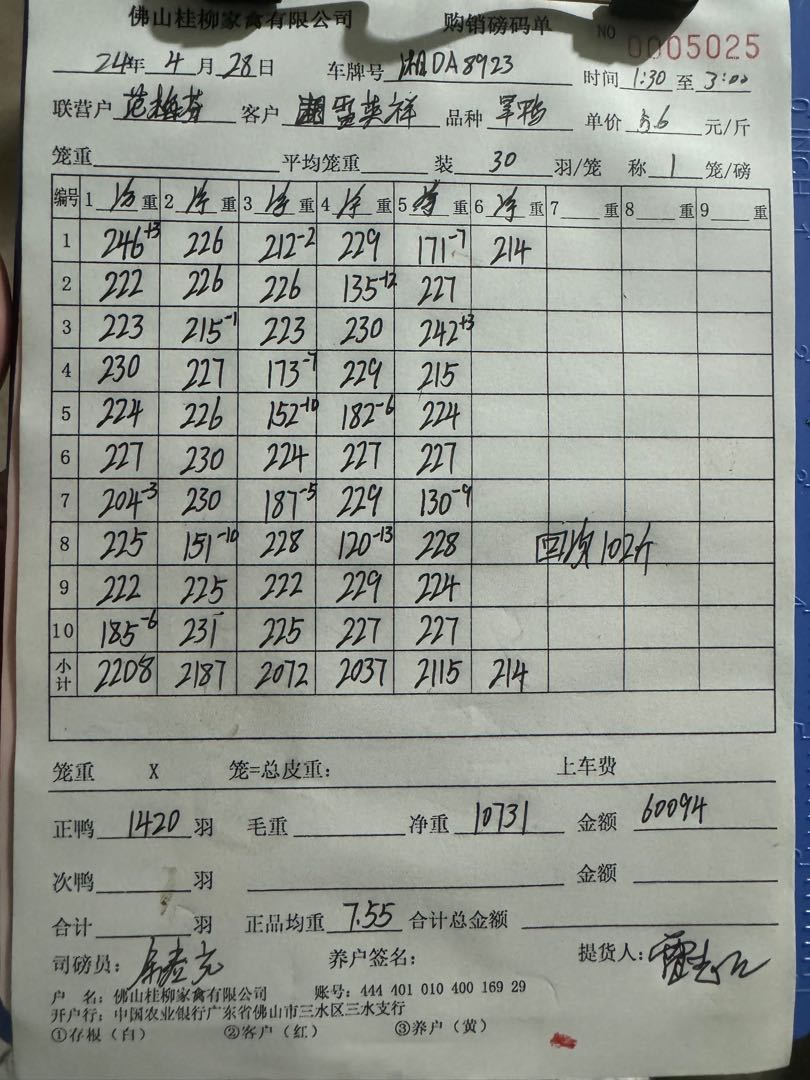 佛山桂柳家禽有限公司 购销磅码单 NO 0005025
24年 4月 28日 车牌号 湘DA8923 时间 1:30 至 3:00
联营户 范梅芬 客户 雷英祥 品种 旱鸭 单价 5.6 元/斤
笼重 平均笼重 装 30 羽/笼 称 1 笼/磅
编号 1 净 重 2 净 重 3 净 重 4 净 重 5 净 重 6 净 重 7 重 8 重 9 重
1 246+3 226 212-2 229 171-7 214
2 222 226 226 135-12 227
3 223 215-1 223 230 242+3
4 230 227 173-7 229 215
5 224 226 152-10 182-6 224
6 227 230 224 227 227
7 204-3 230 187-5 229 130-9
8 225 151-10 228 120-13 228 102斤
9 222 225 222 229 224
10 185-6 231 225 227 227
小计 2208 2187 2072 2037 2115 214
笼重 X 笼=总皮重: 上车费
正鸭 1420 羽 毛重 净重 10731 金额 60094
次鸭 羽 金额
合计 羽 正品均重 7.55 合计总金额
司磅员: 养户签名: 提货人:
户 名: 佛山桂柳家禽有限公司 账号: 444 401 010 400 169 29
开户行: 中国农业银行广东省佛山市三水区三水支行
①存根(白) ②客户(红) ③养户(黄)